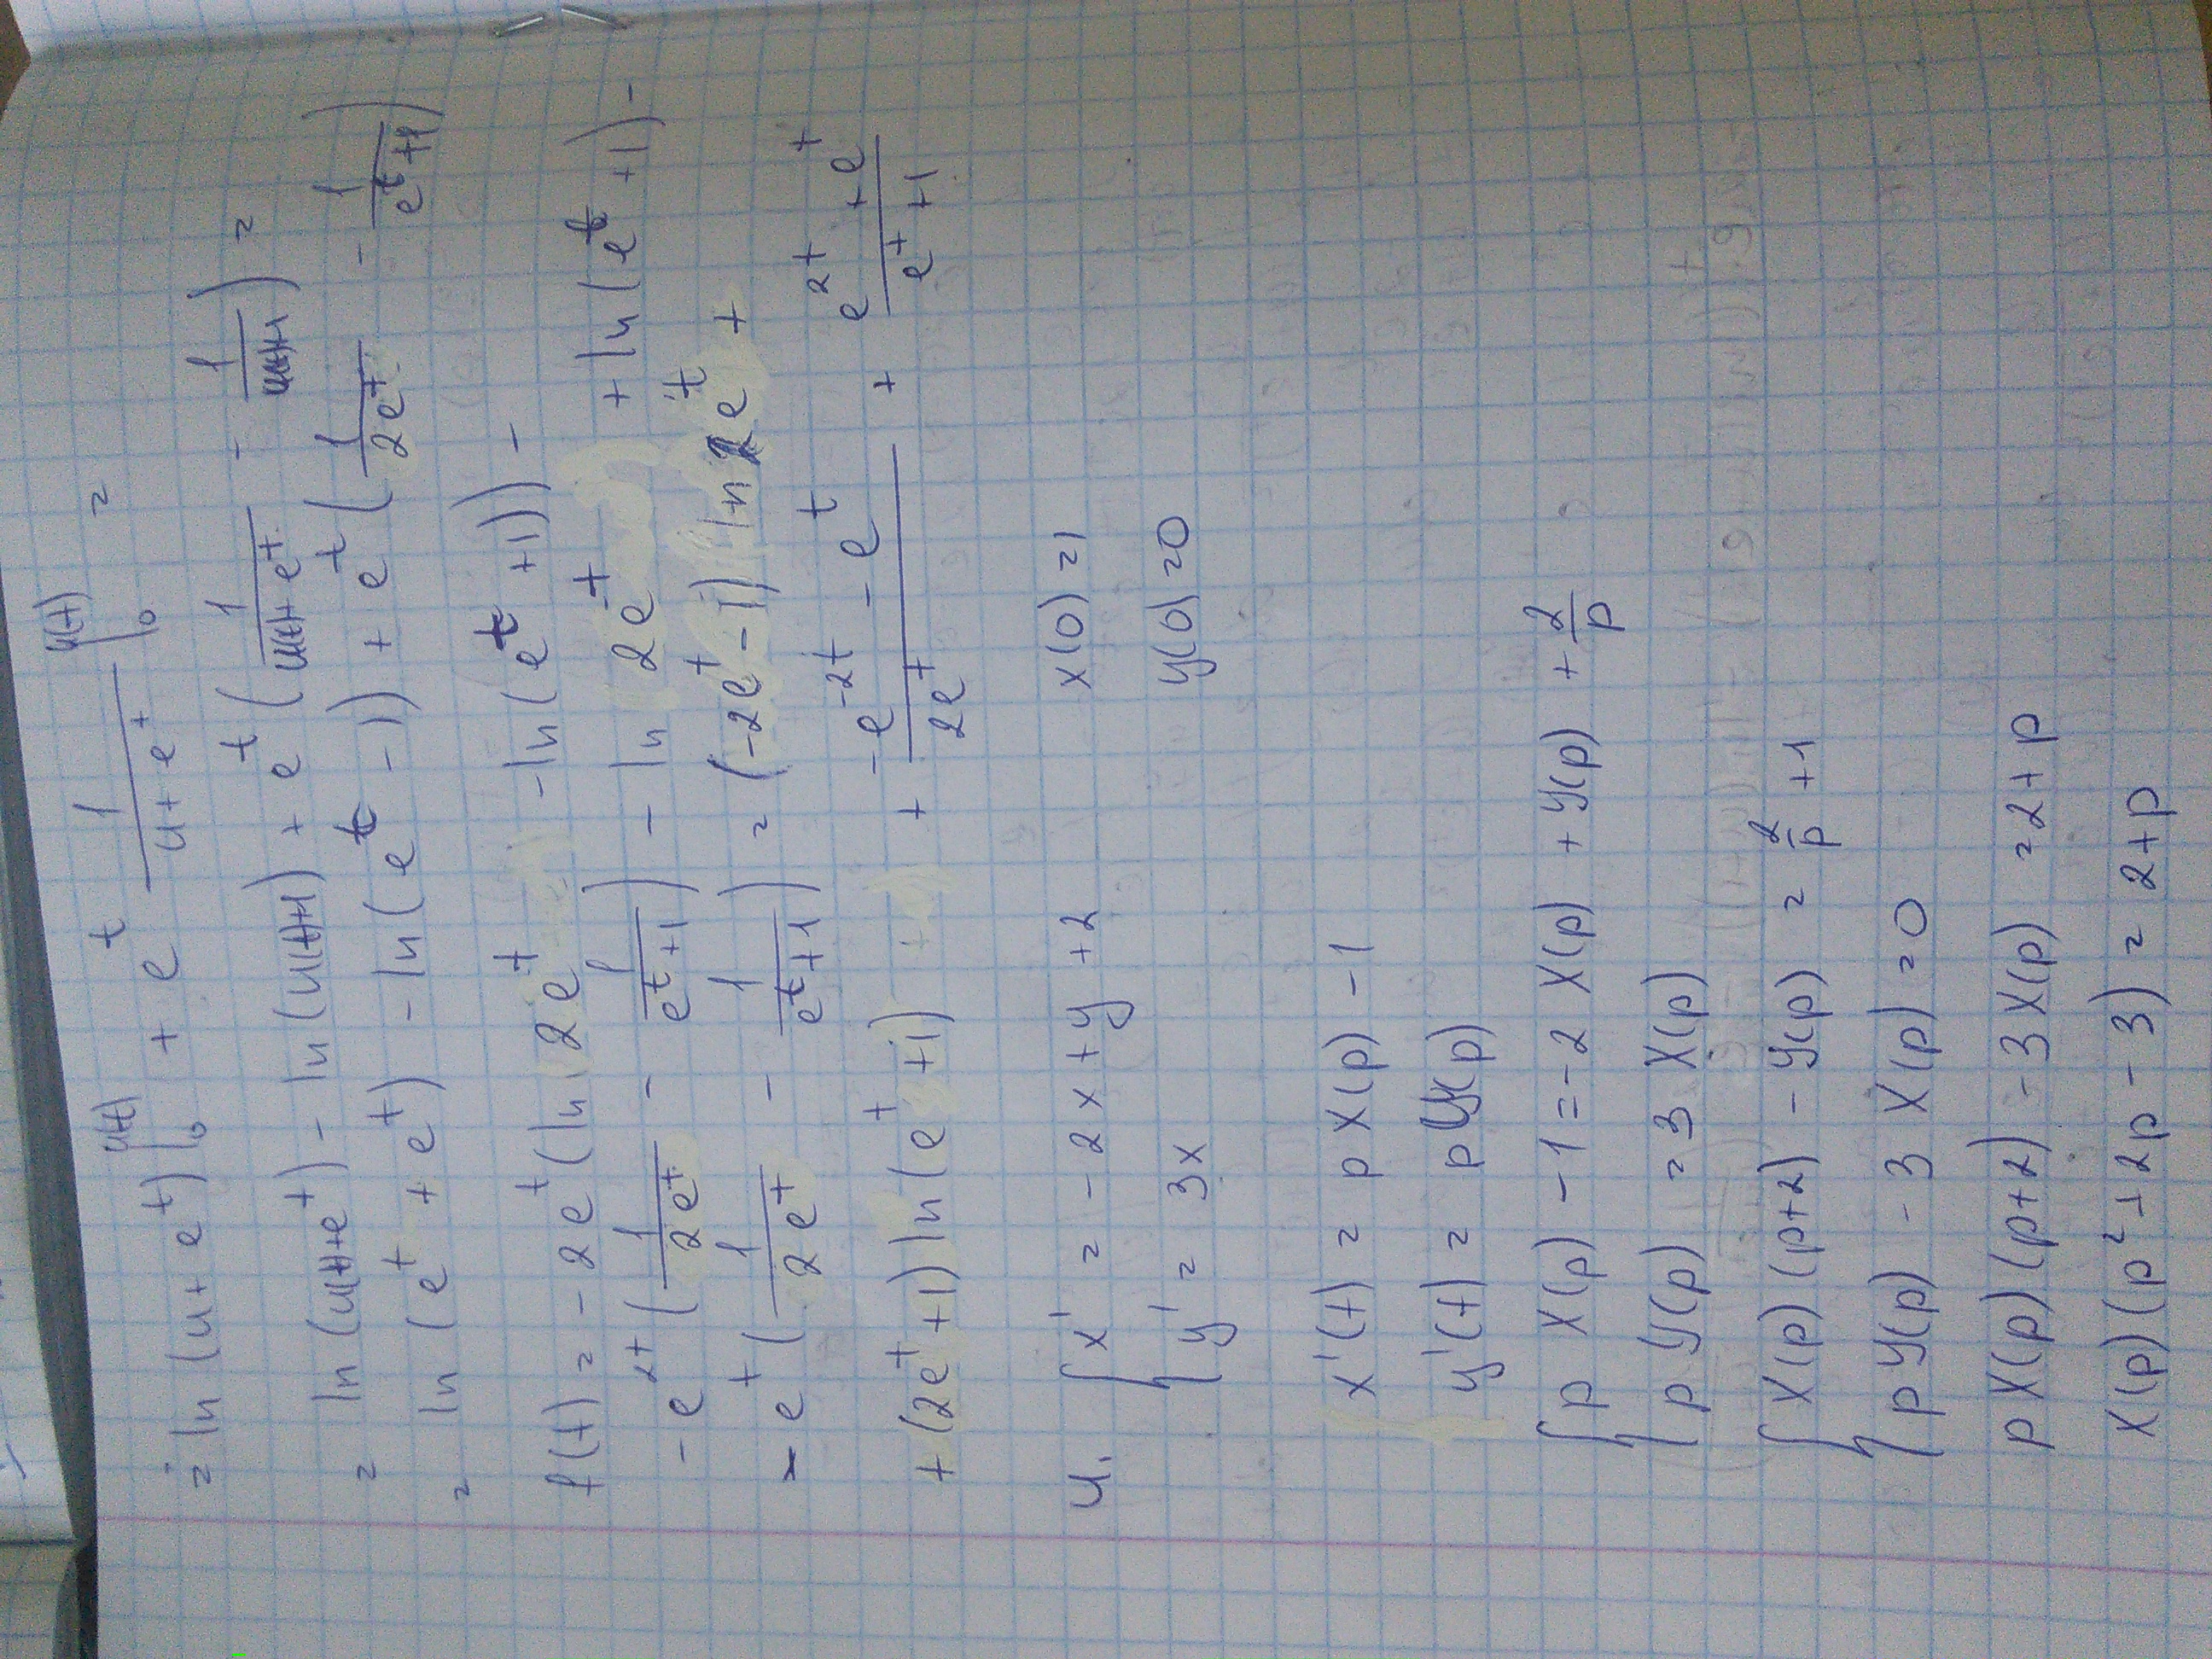 = ln(u+e^t)|_0^{u(t)} + e^t 1/(u+e^t) |_0^{u(t)} =
= ln(u(t)+e^t) - ln(u(t)+1) + e^t(1/(u(t)+e^t) - 1/(u(t)+1)) =
= ln(e^t + e^t) - ln(e^t - 1)) + e^t(1/(2e^t) - 1/(e^t+1))
f(t) = -2e^t(ln 2e^t - ln(e^t+1)) -
- e^{2t}(1/(2e^t) - 1/(e^t+1)) - ln 2e^t + ln(e^t+1) -
- e^t(1/(2e^t) - 1/(e^t+1)) = (-2e^t-1) ln 2e^t +
+ (2e^t+1) ln(e^t+1) + (-e^{-2t} - e^t)/(2e^t) + (e^{2t}+e^t)/(e^t+1)
4. { x' = -2x+y+2 x(0)=1
{ y' = 3x y(0)=0
x'(t) = pX(p) - 1
y'(t) = pY(p)
{ pX(p) - 1 = -2X(p) + Y(p) + 2/p
{ pY(p) = 3X(p)
{ X(p)(p+2) - Y(p) = 2/p + 1
{ pY(p) - 3X(p) = 0
pX(p)(p+2) - 3X(p) = 2+p
X(p)(p²+2p-3) = 2+p